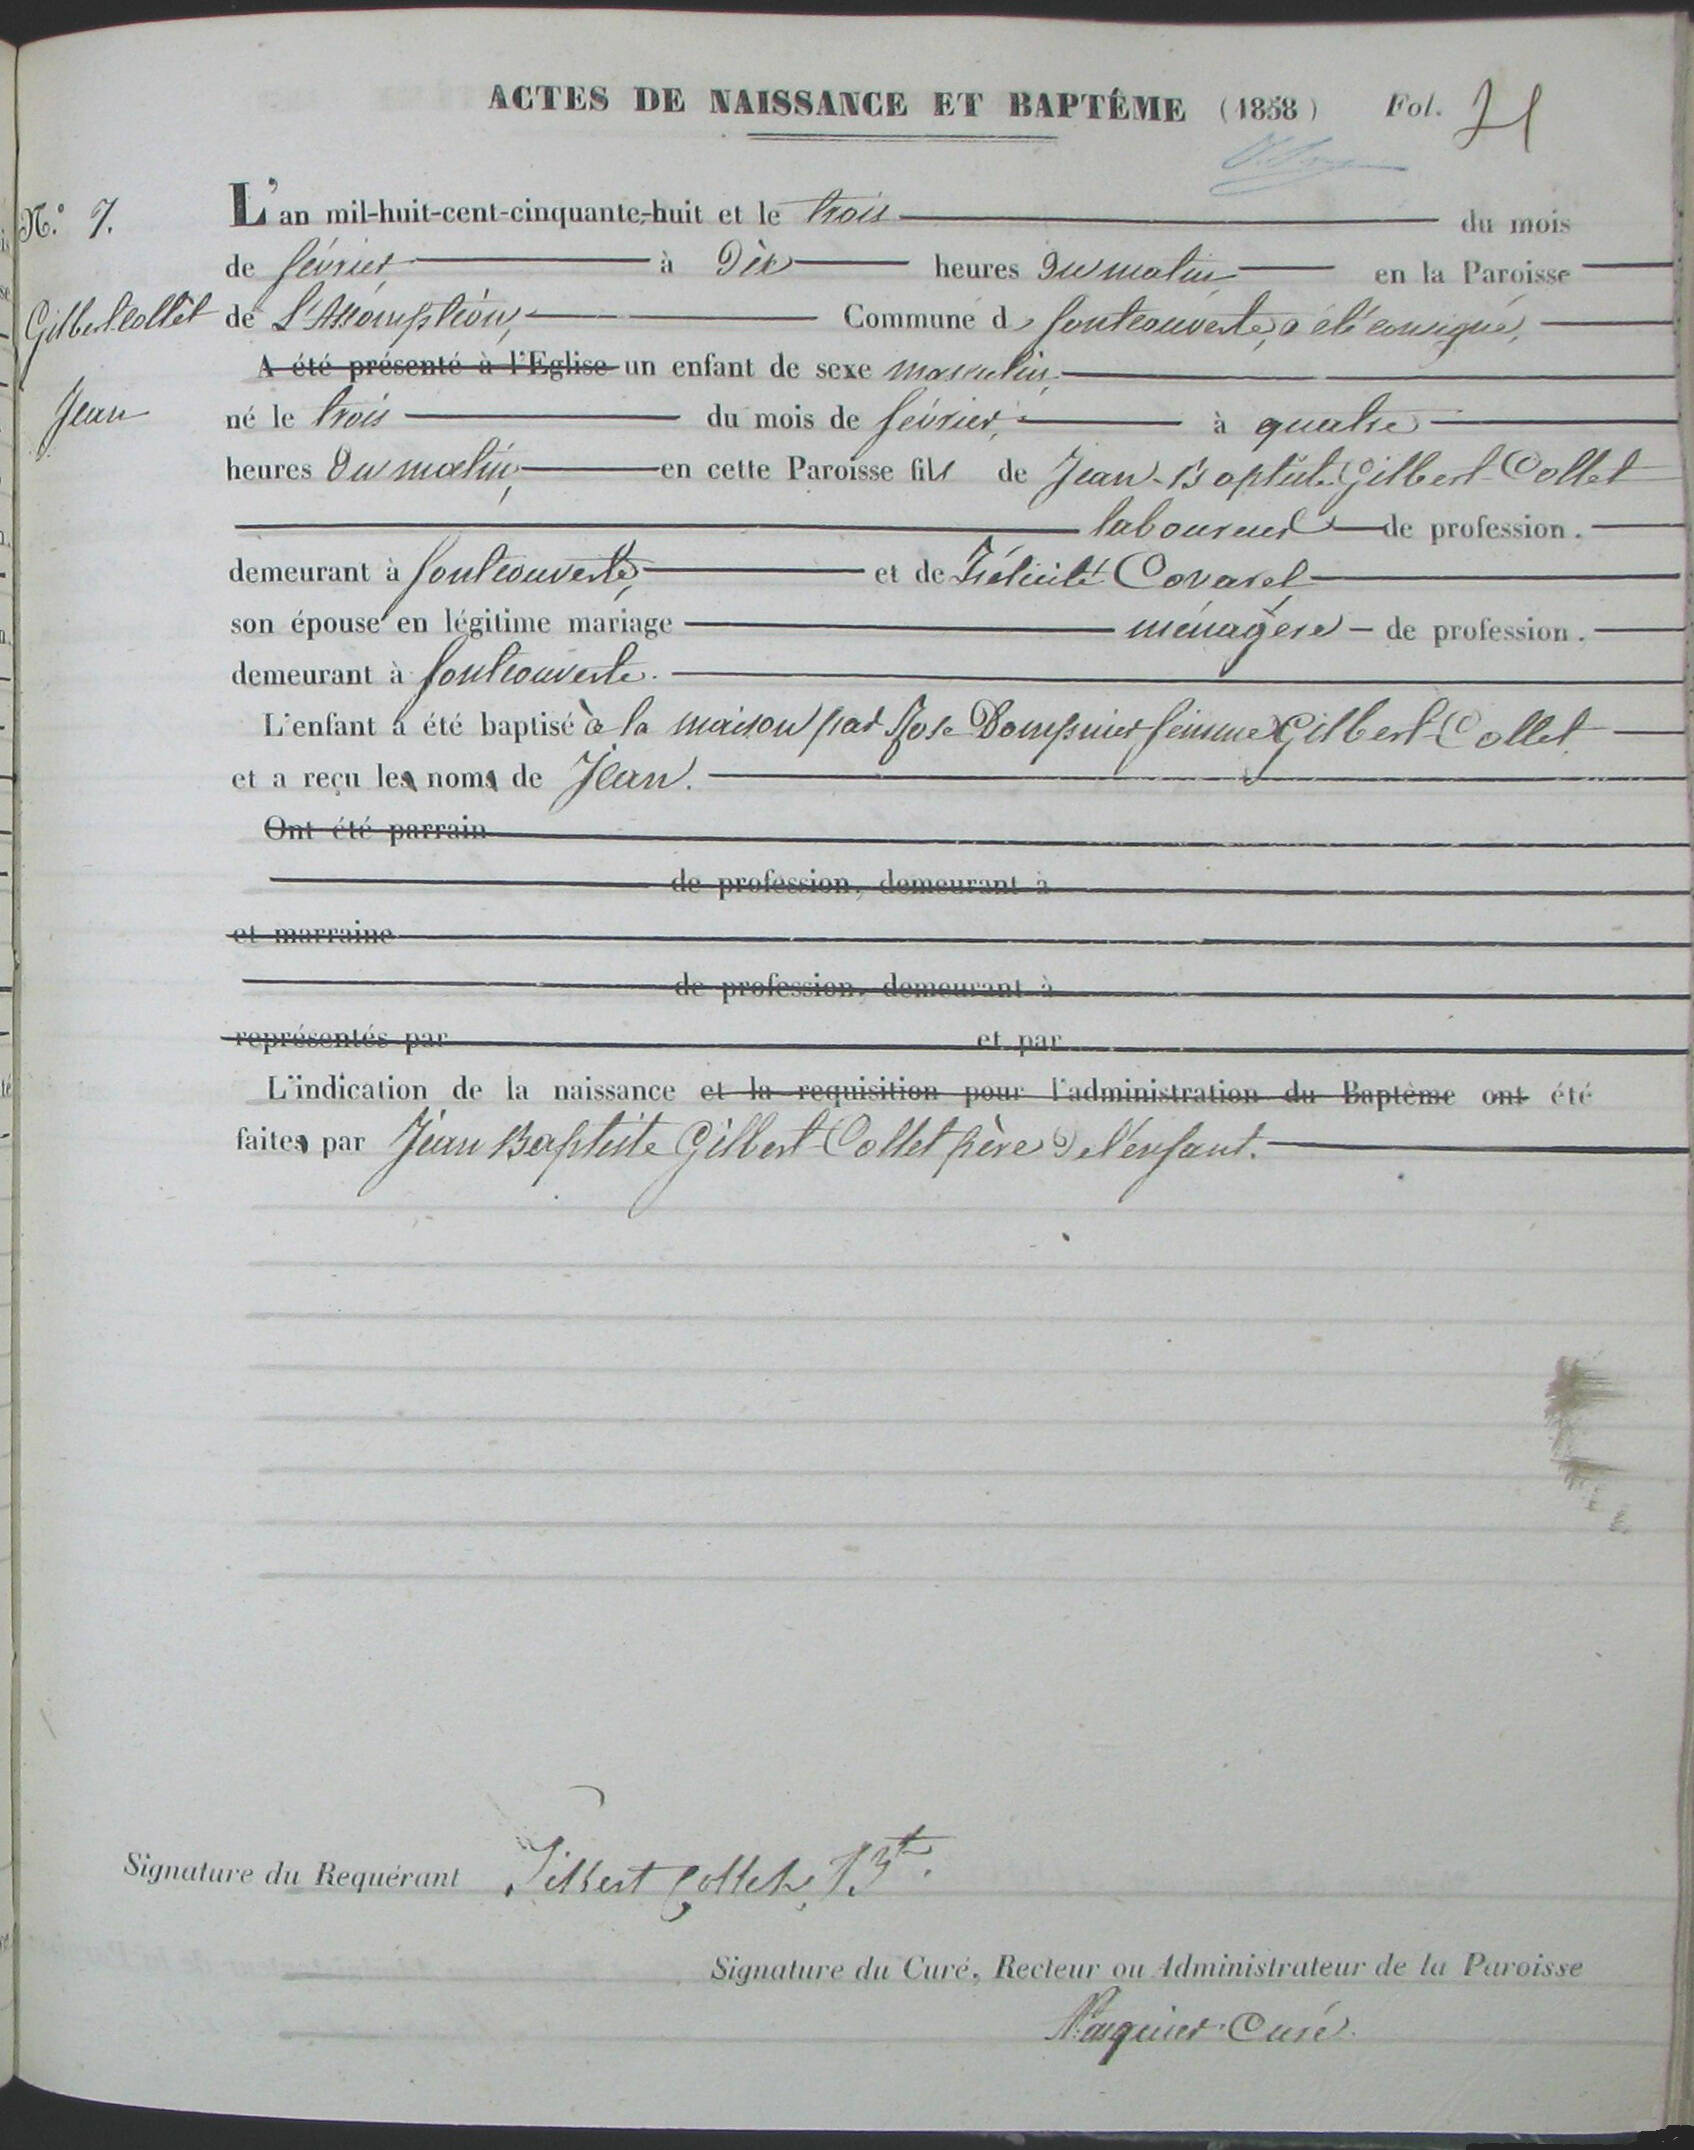 ACTES DE NAISSANCE ET BAPTÊME (1858) Fol. 21
N.° 7.
L'an mil-huit-cent-cinquante-huit et le trois du mois
de février à Dix heures Du matin en la Paroisse
Gilbert Collet
de L'Assomption, Commune d fontcouverte, a été consigné,
A été présenté à l'Eglise un enfant de sexe masculin,
Jean
né le trois du mois de février, à quatre
heures Du matin, en cette Paroisse fils de Jean-Baptiste Gilbert-Collet
laboureur de profession.
demeurant à fontcouverte, et de Félicité Covarel
son épouse en légitime mariage ménagère de profession.
demeurant à fontcouverte.
L'enfant a été baptisé à la maison par Rose Dompnier femme Gilbert-Collet
et a reçu les noms de Jean.
Ont été parrain
de profession, demeurant à
et marraine
de profession, demeurant à
représentés par et par
L'indication de la naissance et la requisition pour l'administration du Baptême ont été
faites par Jean Baptiste Gilbert-Collet père de l'enfant.
Signature du Requérant Gilbert Collet Bt.
Signature du Curé, Recteur ou Administrateur de la Paroisse
Curé